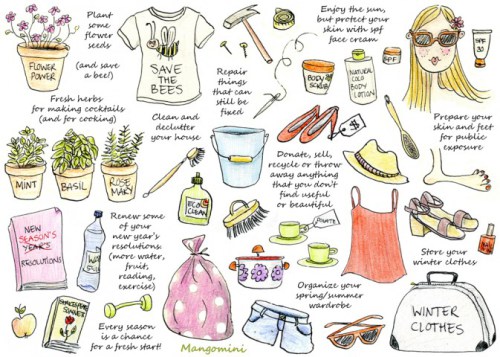 Plant
some
flower
seeds
(and save
a bee!)
FLOWER
POWER
SAVE
THE
BEES
Enjoy the sun,
but protect your
skin with spf
face cream
BODY
SCRUB
NATURAL
COLD
BODY
LOTION
SPF
SPF
30
Repair
things that
can still be
fixed
Fresh herbs
for making cocktails
(and for cooking)
Clean and
declutter
your house
MINT
BASIL
ROSE
MARY
ECO
CLEAN
$
Prepare your
skin and feet
for public
exposure
Donate, sell,
recycle or throw
away anything
that you don't
find useful
or beautiful
NEW
SEASON'S
YEARS
RESOLUTIONS
Renew some
of your
new year's
resolutions:
(more water,
fruit,
reading,
exercise)
Every season
is a chance
for a fresh start!
Mangomini
Organize your
spring/summer
wardrobe
Store your
winter clothes
WINTER
CLOTHES